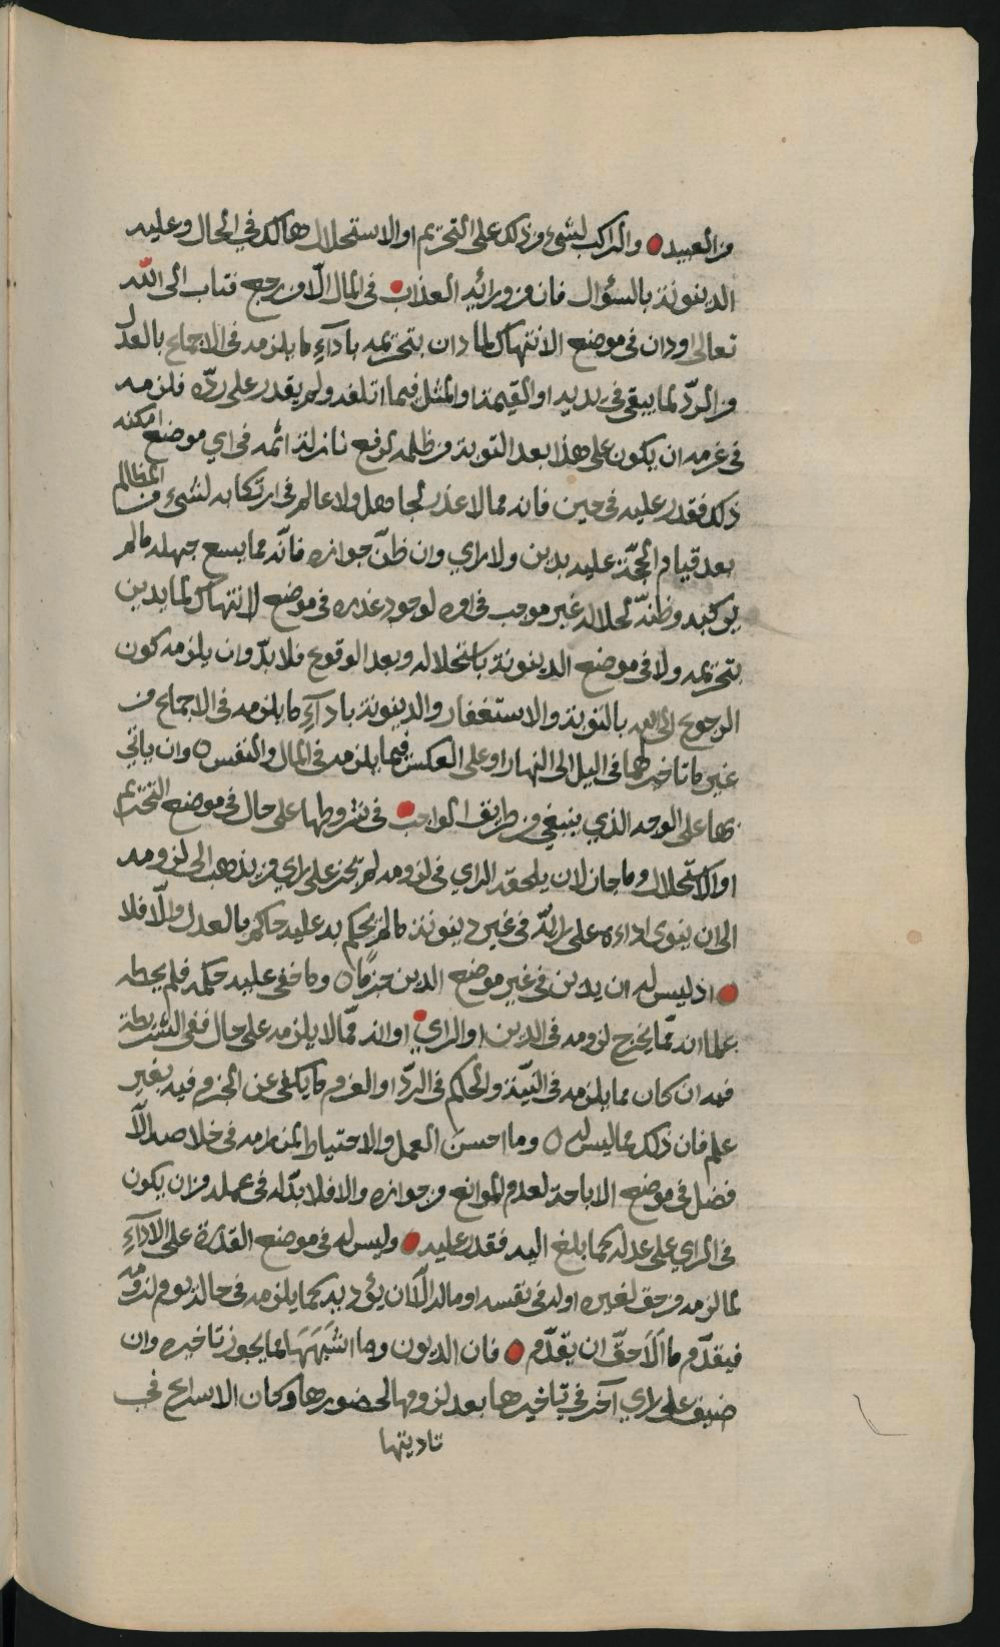 من العبيد والراكب لشيء من ذلك على التحريم او الاستحلال هالك في الحال وعليه
الدينونة بالسؤال فانه من ورائه العذاب في المال الّا من رجع فتاب الى الله
تعالى او دان في موضع الانتهاك لما دان بتحريمه باداء ما يلزمه في الاجماع بالعدل
من الردّ لما يبقى في يديه او القيمة او المثل فيما اتلفه ولم يقدر على ردّه فلزمه
في غرمه ان يكون على هذا بعد التوبة من ظلمه لرفع نازلة اثمه في اي موضع امكنه
ذلك فقدر عليه في حين فانه مما لا عذر لجاهل ولا عالم في ارتكابه لشيء من المظالم
بعد قيام الحجّة عليه بدين ولا راي وان ظنّ جوازه فانّه مما يسع جهله مالم
يركبه وظنّه لحلاله غير موجب في لوجود عذره في موضع الانتهاك لما يدين
بتحريمه ولا في موضع الدينونة باستحلاله وبعد الوقوع فلا بدّ وان يلزمه كون
الرجوع الى الله بالتوبة والاستغفار والدينونة باداء ما يلزمه في الاجماع من
غير ما تاخير لهما في اليل الى النهار او على العكس فيما يلزمه في المال والنفس ه وان ياتي
بها على الوجه الذي ينبغي من طريق الواجب في شروطها على حال في موضع التحريم
او الاستحلال وما جاز لان يلحقه الراي في لزومه لم يجز على راي من يذهب الى لزومه
الى ان ينوى اداءه على رايه في غير دينونة مالم يحكم به عليه حاكم بالعدل والّا فلا
اذ ليس له ان يدين في غير موضع الدين جزمًا ه وما خفي عليه حكمه فلم يحطه
علما انه ممّا يخرج لزومه في الدين او الراي او انه ممّا لا يلزمه على حال ففي الشريطة
فيه ان كان مما يلزمه في النيّة والحكم في الردّ او الغرم ما يكفي عن الجزم فيه بغير
علم فان ذلك مما ليس له ه وما احسن العمل والاحتياط لمن رامه في خلاصه الّا
فضل في موضع الاباحة لعدم الموانع من جوازه والا فلا بدّ له في عمله من ان يكون
في الراي على عدله كما بلغ اليه فقدر عليه وليس له في موضع القدرة على الاداء
لما لزمه من حق لغيره او له في نفسه او ماله الّا ان يؤديه كما يلزمه في حالة يوم لزومه
فيقدّم ما الّا حقّ ان يقدّم فان الديون وما اشبهها لما يجوز تاخيره وان
ضيق على راي آخر في تاخيرها بعد لزومها لحضورها وكان الاسراع في
تاديتها